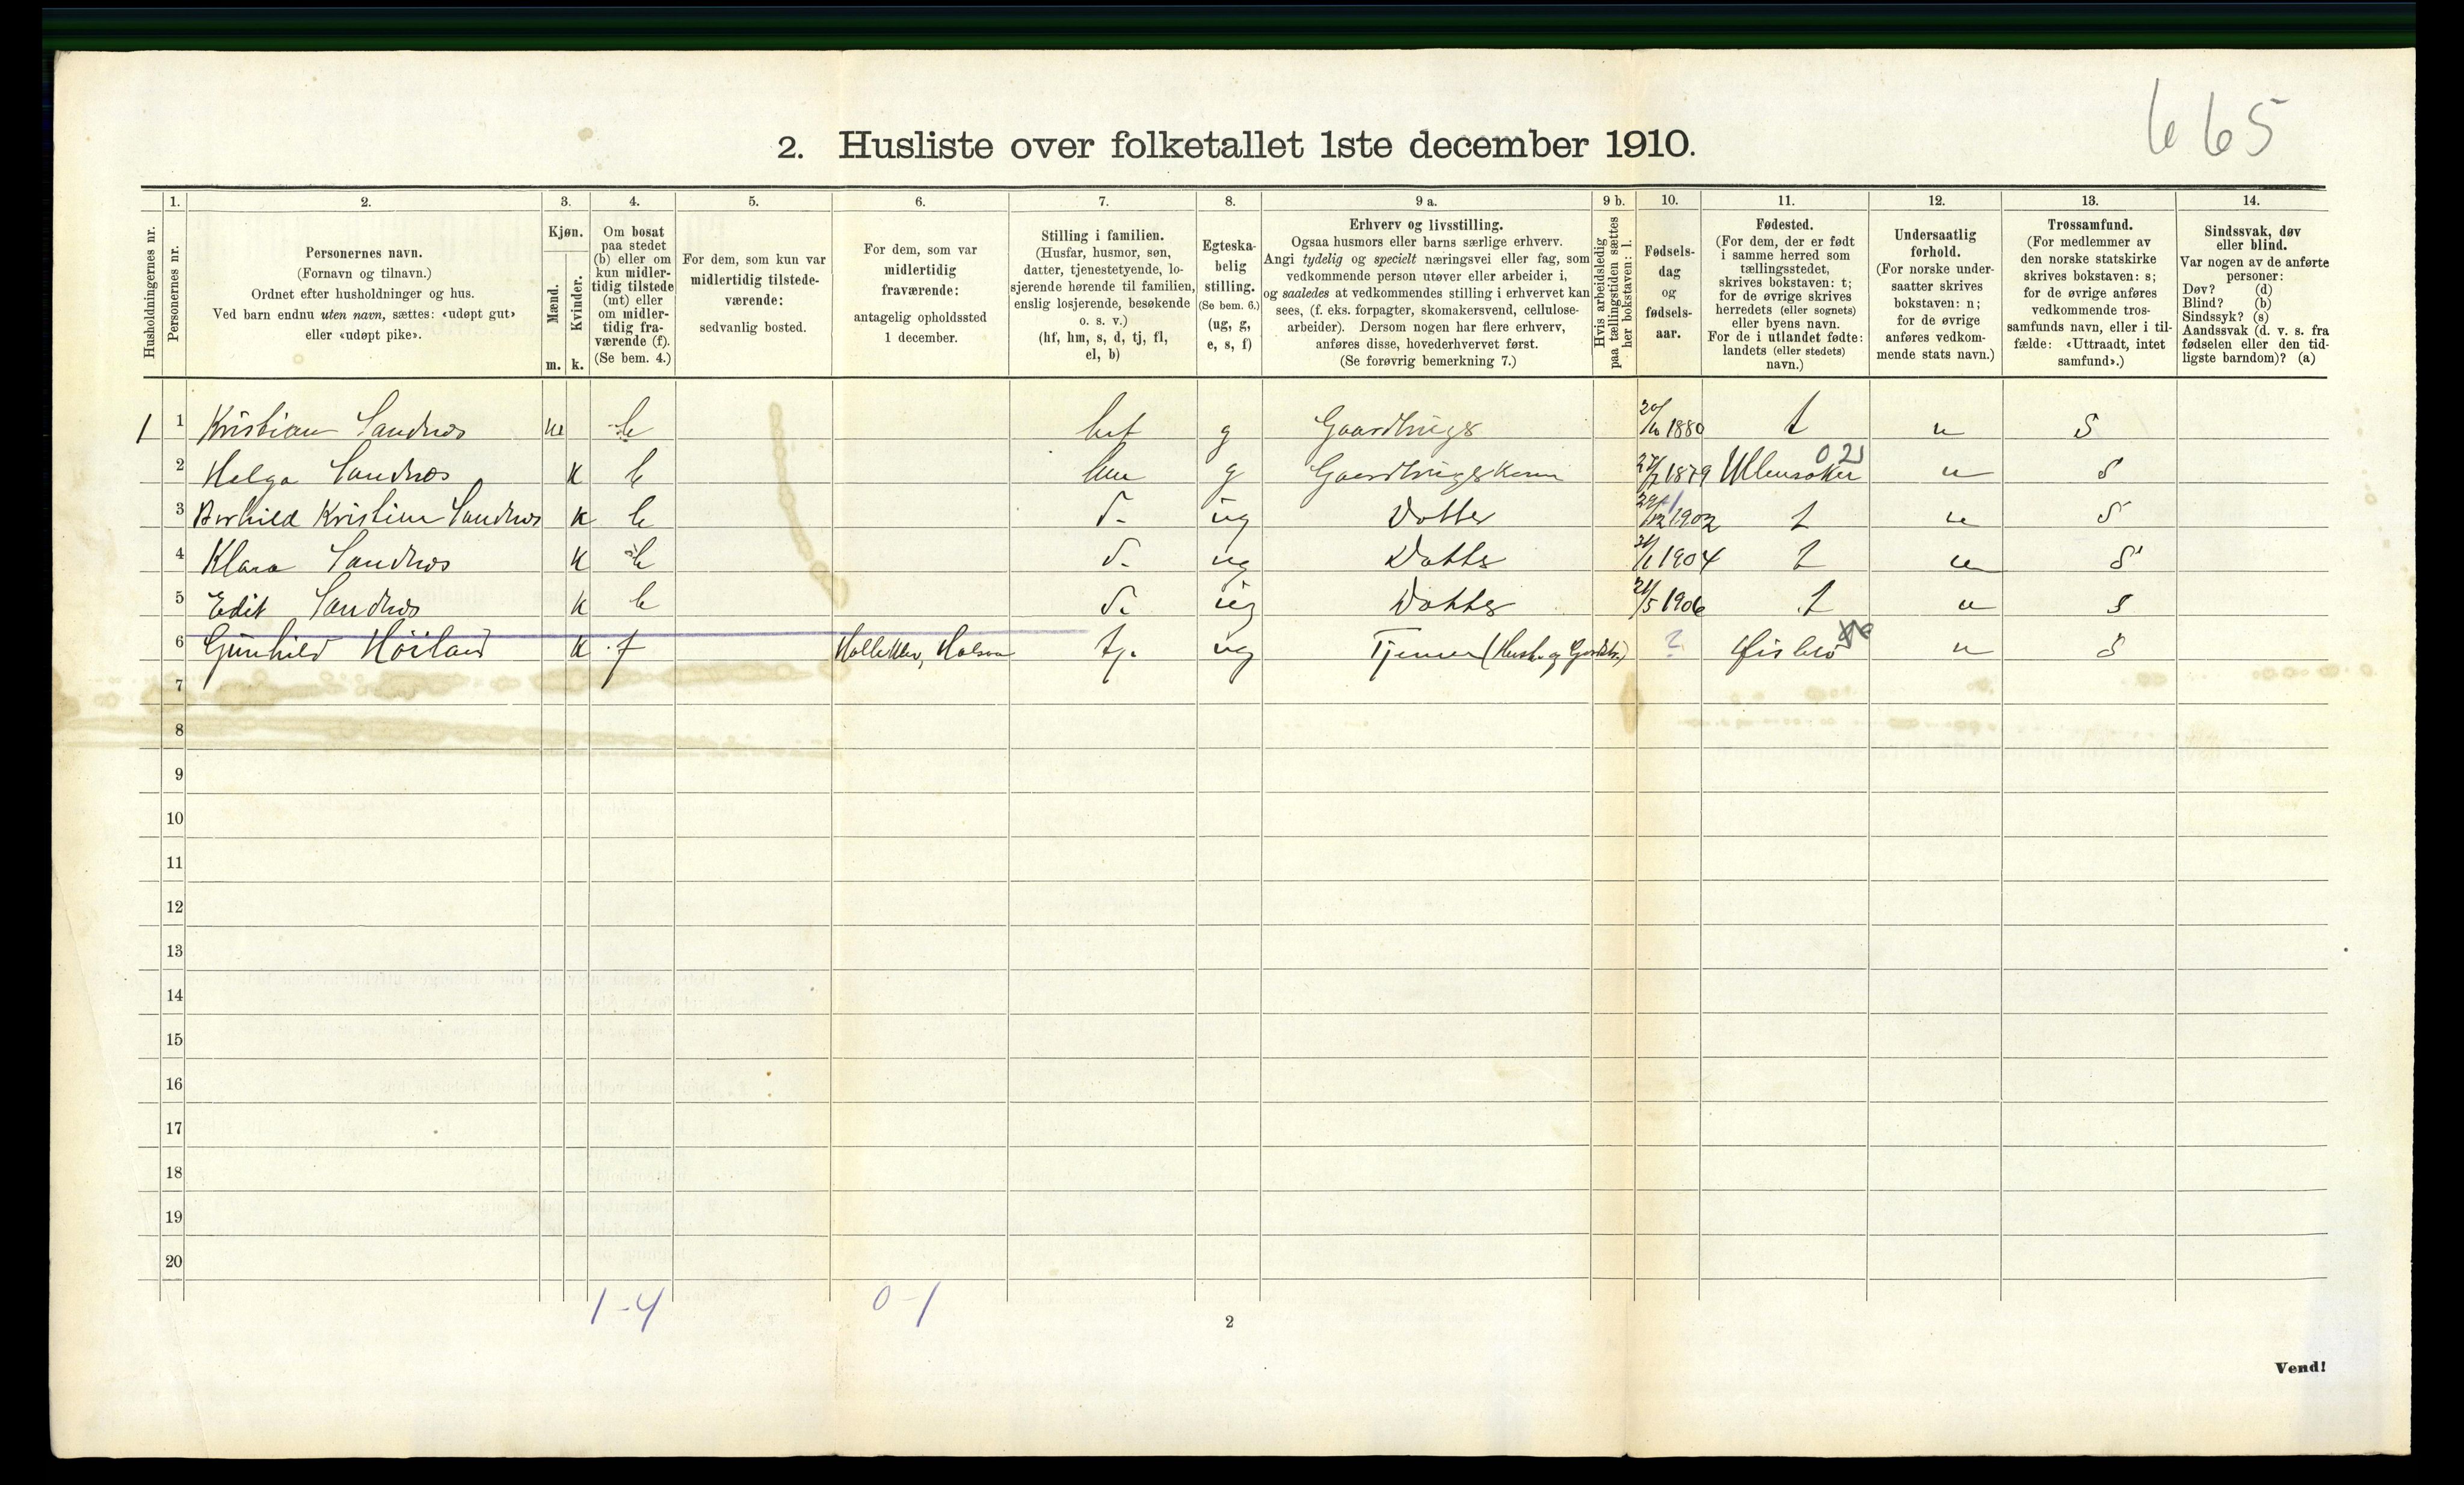 665
2. Husliste over folketallet 1ste december 1910.
Husholdningernes nr.
1.
Personernes nr.
2.
Personernes navn.
(Fornavn og tilnavn.)
Ordnet efter husholdninger og hus.
Ved barn endnu uten navn, sættes: «udøpt gut»
eller «udøpt pike».
3.
Kjøn.
Mænd.
Kvinder.
m. k.
4.
Om bosat
paa stedet
(b) eller om
kun midler-
tidig tilstede
(mt) eller
om midler-
tidig fra-
værende (f).
(Se bem. 4.)
5.
For dem, som kun var
midlertidig tilstede-
værende:
sedvanlig bosted.
6.
For dem, som var
midlertidig
fraværende:
antagelig opholdssted
1 december.
7.
Stilling i familien.
(Husfar, husmor, søn,
datter, tjenestetyende, lo-
sjerende hørende til familien,
enslig losjerende, besøkende
o. s. v.)
(hf, hm, s, d, tj, fl,
el, b)
8.
Egteska-
belig
stilling.
(Se bem. 6.)
(ug, g,
e, s, f)
9 a.
Erhverv og livsstilling.
Ogsaa husmors eller barns særlige erhverv.
Angi tydelig og specielt næringsvei eller fag, som
vedkommende person utøver eller arbeider i,
og saaledes at vedkommendes stilling i erhvervet kan
sees, (f. eks. forpagter, skomakersvend, cellulose-
arbeider). Dersom nogen har flere erhverv,
anføres disse, hovederhvervet først.
(Se forøvrig bemerkning 7.)
9 b.
Hvis arbeidsledig
paa tællingstiden sættes
her bokstaven: l.
10.
Fødsels-
dag
og
fødsels-
aar.
11.
Fødested.
(For dem, der er født
i samme herred som
tællingsstedet,
skrives bokstaven: t;
for de øvrige skrives
herredets (eller sognets)
eller byens navn.
For de i utlandet fødte:
landets (eller stedets)
navn.)
12.
Undersaatlig
forhold.
(For norske under-
saatter skrives
bokstaven: n;
for de øvrige
anføres vedkom-
mende stats navn.)
13.
Trossamfund.
(For medlemmer av
den norske statskirke
skrives bokstaven: s;
for de øvrige anføres
vedkommende tros-
samfunds navn, eller i til-
fælde: «Uttraadt, intet
samfund».)
14.
Sindssvak, døv
eller blind.
Var nogen av de anførte
personer:
Døv? (d)
Blind? (b)
Sindssyk? (s)
Aandssvak (d. v. s. fra
fødselen eller den tid-
ligste barndom)? (a)
1 1 Kristian Sandnes m b hf g 1880 t n s
2 Helga Sandnes k b hm g 1879 Ullensaker n s
3 Kristine Sandnes k b d. ug Datter 1902 t n s
4 Klara Sandnes k b d. ug Datter 1904 t n s
5 Edit Sandnes k b d. ug Datter 21/5 1906 t n s
6 Gunhild Höiland k f tj. ug ? n s
7
8
9
10
11
12
13
14
15
16
17
18
19
20
1-4 0-1
2
Vend!